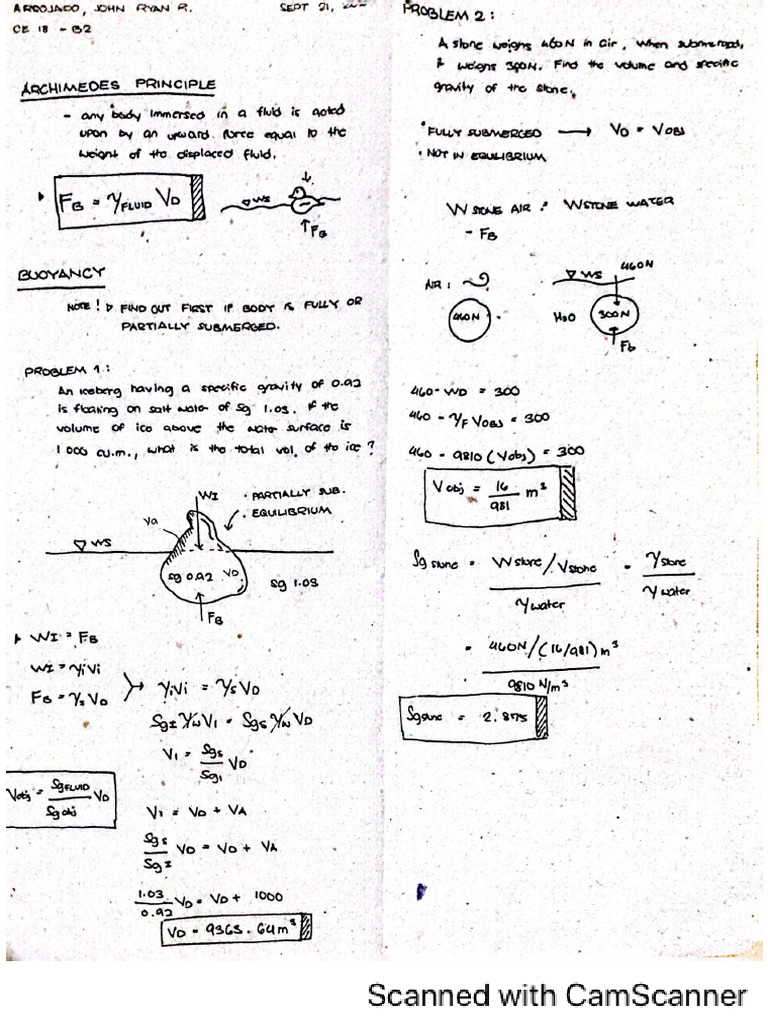 ARROJADO, JOHN RYAN R. SEPT 21,
CE 18 - B2
ARCHIMEDES PRINCIPLE
- any body immersed in a fluid is acted
upon by an upward force equal to the
weight of the displaced fluid.
FB = γFLUID VD
WS
FB
BUOYANCY
NOTE! FIND OUT FIRST IF BODY IS FULLY OR
PARTIALLY SUBMERGED.
PROBLEM 1:
An iceberg having a specific gravity of 0.92
is floating on salt water of sg 1.03. If the
volume of ice above the water surface is
1000 cu.m., what is the total vol. of the ice?
WI
• PARTIALLY SUB.
• EQUILIBRIUM
Va
WS
sg 0.92 VD
sg 1.03
FB
WI = FB
WI = γiVi
FB = γsVD
γiVi = γsVD
SgI γW VI = SgS γW VD
VI = SgS/SgI VD
Vobj = SgFLUID/Sgobj VD
VI = VD + VA
SgS/SgI VD = VD + VA
1.03/0.92 VD = VD + 1000
VD = 9363.64 m³
PROBLEM 2:
A stone weighs 460N in air. When submerged,
it weighs 300N. Find the volume and specific
gravity of the stone.
• FULLY SUBMERGED → VD = VOBJ
• NOT IN EQUILIBRIUM
W STONE AIR = WSTONE WATER
- FB
AIR:
460N
WS
460N
H2O
300N
Fb
460 - WD = 300
460 - γF VOBJ = 300
460 - 9810 (Vobj) = 300
Vobj = 16/981 m³
Sg stone = Wstone/Vstone / γwater = γstone / γwater
= 460N/(16/981)m³ / 9810 N/m³
Sgstone = 2.875
Scanned with CamScanner